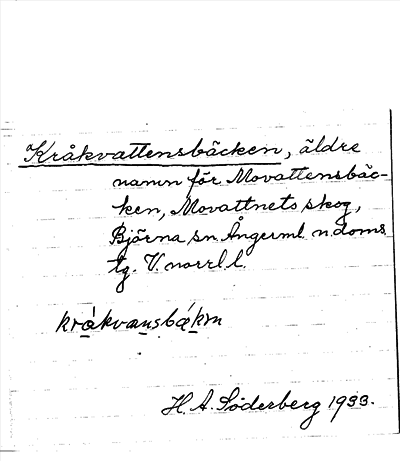 Kråkvattensbäcken, äldre
namn för Movattensbäc-
ken, Movattnets skog,
Björna sn Ångerml. n. doms.
tg. V. norrl. l.
kråkvansbäkm
H. A. Söderberg 1933.